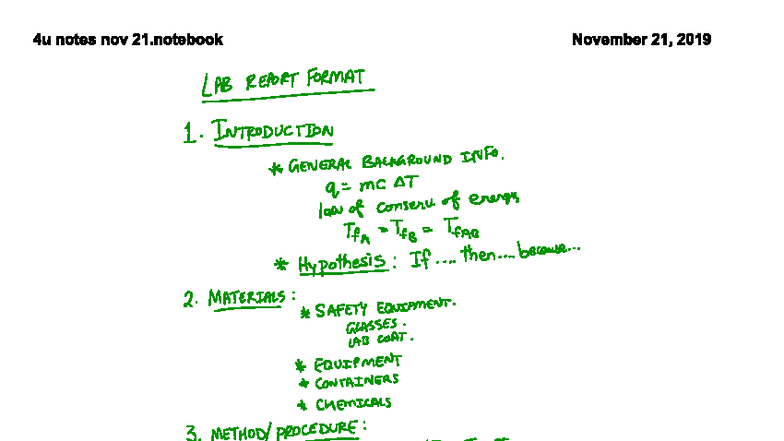 4u notes nov 21.notebook
November 21, 2019
LAB REPORT FORMAT
1. INTRODUCTION
* GENERAL BACKGROUND INFO.
q = mc ΔT
law of conserv of energy
TfA = TfB = TfAB
* Hypothesis: If .... then.... because...
2. MATERIALS:
* SAFETY EQUIPMENT.
GLASSES.
LAB COAT.
* EQUIPMENT
* CONTAINERS
* CHEMICALS
3. METHOD/PROCEDURE: